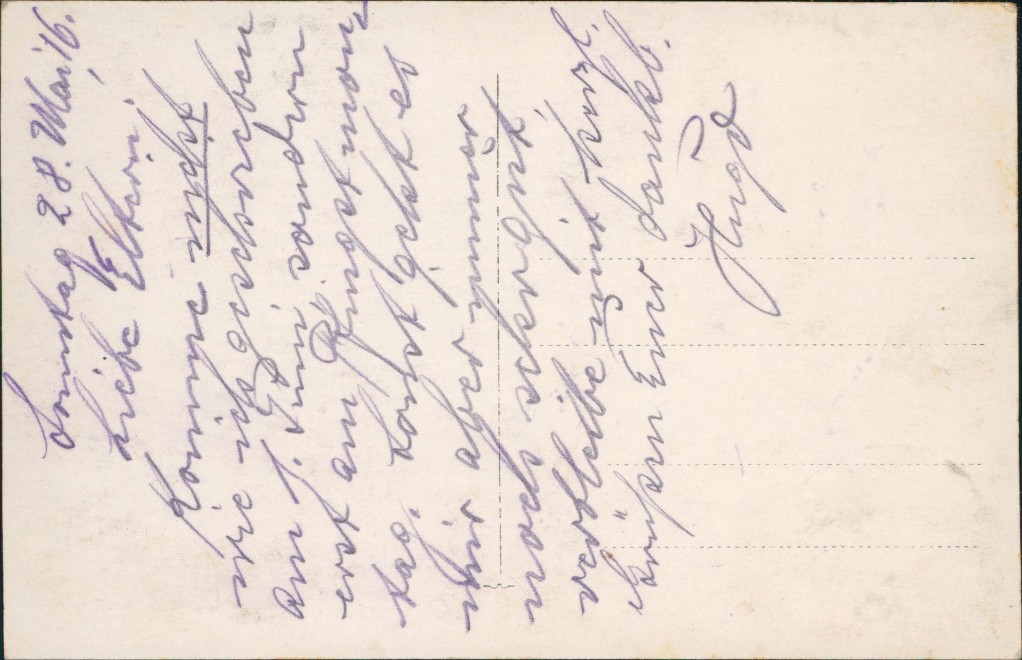 Sonntag 28. Mai 16.
Liebe Eltern!
Komme nicht
wie ich geschrieben
am 1. Juni sondern
erst am Pfingstmon-
tag. Sonst geht es
mir aber immer
noch sehr gut,
verbleibe mit herzl.
Grüßen Euer dankb.
Hugo